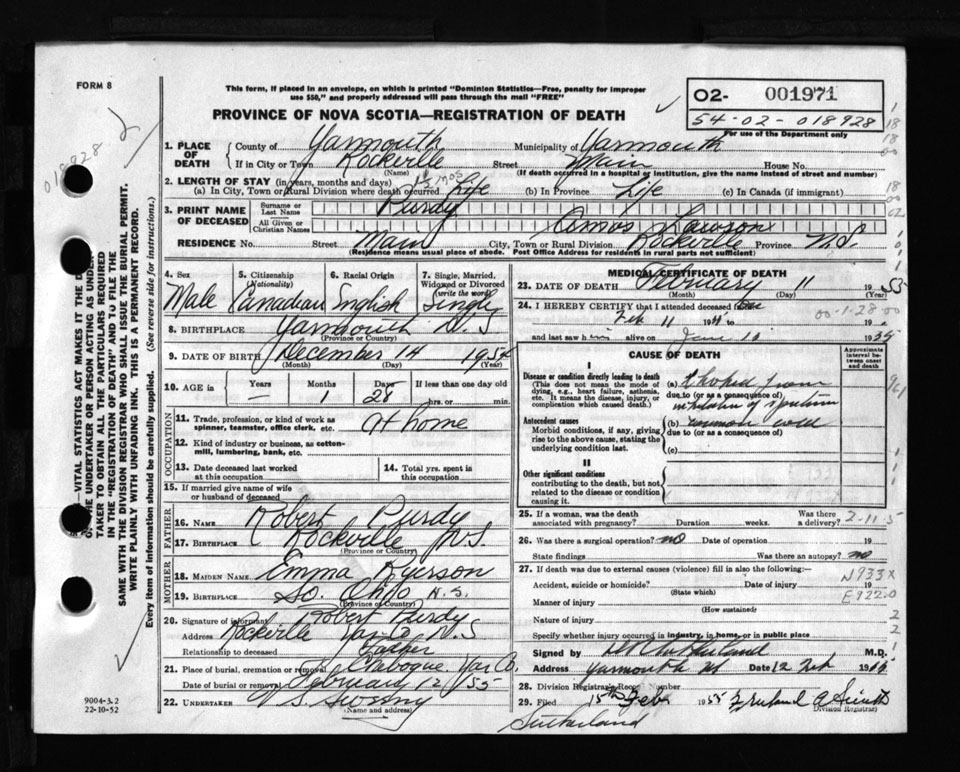 FORM 8
This form, if placed in an envelope, on which is printed "Dominion Statistics—Free, penalty for improper
use $50," and properly addressed will pass through the mail "FREE"
PROVINCE OF NOVA SCOTIA—REGISTRATION OF DEATH
02- 001971
54-02-018928
For use of the Department only
018928
1. PLACE OF DEATH
County of Yarmouth Municipality of Yarmouth
If in City or Town Rockville Street Main House No.
(Name) (If death occurred in a hospital or institution, give the name instead of street and number)
2. LENGTH OF STAY (in years, months and days)
(a) In City, Town or Rural Division where death occurred Life (b) In Province Life (c) In Canada (if immigrant)
3. PRINT NAME OF DECEASED
Surname or Last Name Purdy
All Given or Christian Names Amos Lawson
RESIDENCE No. Street Main City, Town or Rural Division Rockville Province N.S.
(Residence means usual place of abode. Post Office Address for residents in rural parts not sufficient)
4. Sex Male
5. Citizenship (Nationality) Canadian
6. Racial Origin English
7. Single, Married, Widowed or Divorced (write the word) Single
8. BIRTHPLACE Yarmouth N.S
(Province or Country)
9. DATE OF BIRTH December 14 1954
(Month) (Day) (Year)
10. AGE in Years — Months 1 Days 28 If less than one day old hrs. or min.
OCCUPATION
11. Trade, profession, or kind of work as spinner, teamster, office clerk, etc. At home
12. Kind of industry or business, as cotton-mill, lumbering, bank, etc.
13. Date deceased last worked at this occupation
14. Total yrs. spent in this occupation
15. If married give name of wife or husband of deceased
FATHER
16. Name Robert Purdy
17. Birthplace Rockville N.S.
(Province or Country)
MOTHER
18. Maiden Name Emma Ryerson
19. Birthplace So. Ohio N.S.
(Province or Country)
20. Signature of informant Robert Purdy
Address Rockville N.S
Relationship to deceased Father
21. Place of burial, cremation or removal Yar Co.
Date of burial or removal February 12/55
22. UNDERTAKER
(Name and Address)
MEDICAL CERTIFICATE OF DEATH
23. DATE OF DEATH February 11 1955
(Month) (Day) (Year)
24. I HEREBY CERTIFY that I attended deceased
Feb 11 19
and last saw h alive on 19
00-1-28-00
CAUSE OF DEATH
Approximate interval between onset and death
I
Disease or condition directly leading to death
(This does not mean the mode of dying, e.g., heart failure, asthenia, etc. It means the disease, injury, or complication which caused death.)
(a) Choked from
due to (or as a consequence of)
inhalation of
Antecedent causes
Morbid conditions, if any, giving rise to the above cause, stating the underlying condition last.
(b) common cold
due to (or as a consequence of)
(c)
II
Other significant conditions
contributing to the death, but not related to the disease or condition causing it.
25. If a woman, was the death associated with pregnancy? Duration weeks. Was there a delivery?
2-11-5
26. Was there a surgical operation? no Date of operation 19
State findings Was there an autopsy? no
27. If death was due to external causes (violence) fill in also the following:—
Accident, suicide or homicide? Date of injury 19
(State which)
N933X
E922.0
Manner of injury
(How sustained)
Nature of injury
Specify whether injury occurred in industry, in home, or in public place
Signed by M.D.
Address Yarmouth NS Date 12 Feb 19
28. Division Registrar's Record Number
29. Filed 15th Feb 1955
Division Registrar
Sutherland
9004-3.2
22-10-52
VITAL STATISTICS ACT MAKES IT THE D
THE UNDERTAKER OR PERSON ACTING AS UNDER-
TAKER TO OBTAIN ALL THE PARTICULARS REQUIRED
IN THE "REGISTRATION OF DEATH" AND TO FILE THE
SAME WITH THE DIVISION REGISTRAR WHO SHALL ISSUE THE BURIAL PERMIT.
WRITE PLAINLY WITH UNFADING INK. THIS IS A PERMANENT RECORD.
Every item of information should be carefully supplied. (See reverse side for instructions.)